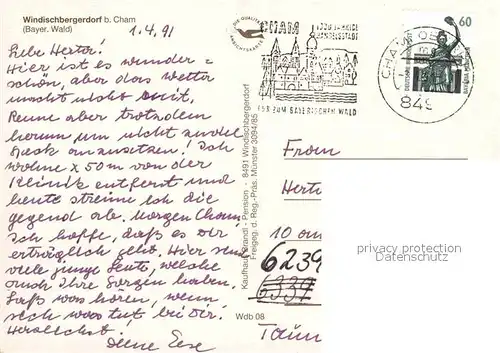 Windischbergerdorf b. Cham
(Bayer. Wald)
1.4.91
Liebe Herta!
Hier ist es wunder =
schön, aber das Wetter
macht nicht mit.
Renne aber trotzdem
herum, um nicht zuviel
Speck anzusetzen! Ich
wohne x 50 m von der
Klinik entfernt und
heute streune ich die
Gegend ab. Morgen Cham,
Ich hoffe, daß es dir
erträglich geht. Hier sind
viele junge Leute, welche
auch Ihre Sorgen haben.
Laß was hören, wenn
sich was tut bei dir.
Herzlichst!
Deine
Kaufhaus Brandl - Pension - 8491 Windischbergerdorf
Freigeg. d. Reg.-Präs. Münster 3094/85
Wdb 08
DIE QUALITÄTS
ANSICHTSKARTE
CHAM
HANDELSSTADT
TOR ZUM BAYERISCHEN WALD
CHAM
849
60
DEUTSCHE BUNDESPOST
Frau
10 am
6239
6339
Taun
privacy protection
Datenschutz